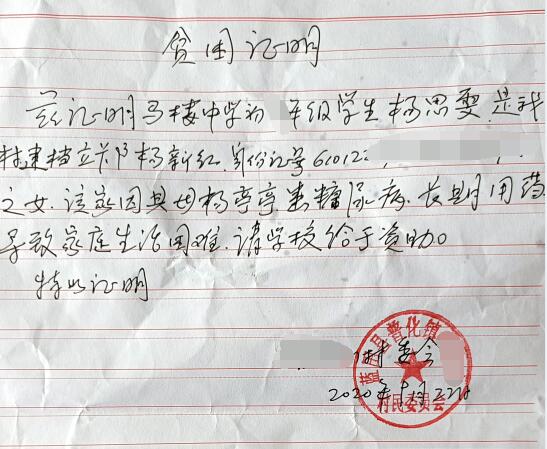 贫困证明
兹证明马楼中学初 年级学生杨思雯是我
村建档立卡户杨新红,身份证号61012
之女,该家因其母杨亭亭患糖尿病,长期用药
导致家庭生活困难,请学校给于资助。
特此证明
村委会
2020年 月22日
蓝 县普化镇
村民委员会